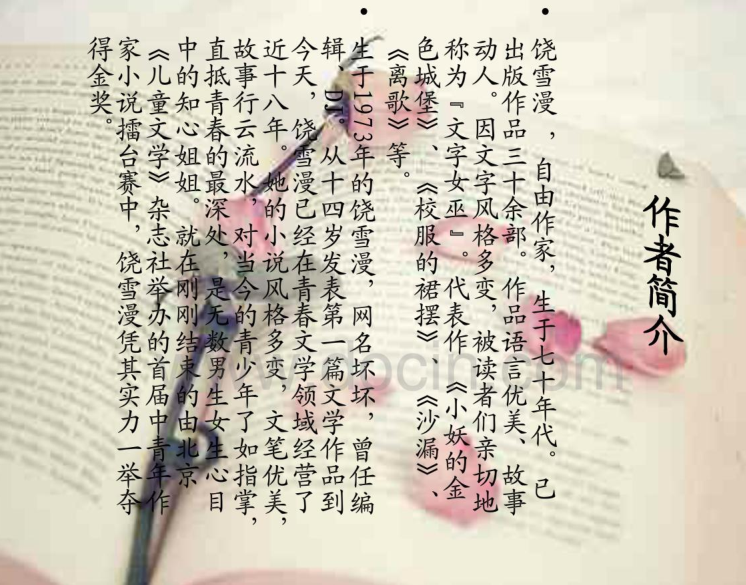 作者简介
• 饶雪漫，自由作家，生于七十年代。已
出版作品三十余部。作品语言优美、故事
动人。因文字风格多变，被读者们亲切地
称为『文字女巫』。代表作《小妖的金
色城堡》、《校服的裙摆》、《沙漏》、
《离歌》等。
• 生于1973年的饶雪漫，网名坏坏，曾任编
辑、DJ。从十四岁发表第一篇文学作品到
今天，饶雪漫已经在青春文学领域经营了
近十八年。她的小说风格多变，文笔优美，
故事行云流水，对当今的青少年了如指掌，
直抵青春的最深处，是无数男生女生心目
中的知心姐姐。就在刚刚结束的由北京
《儿童文学》杂志社举办的首届中青年作
家小说擂台赛中，饶雪漫凭其实力一举夺
得金奖。